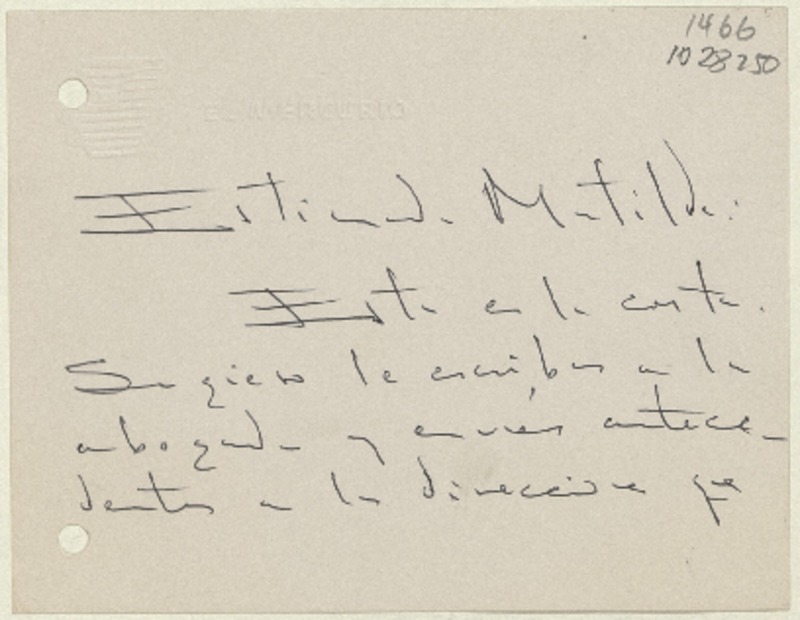 1466
1028250
EL MERCURIO
Estimada Matilde:
Esta es la carta.
Sugiero le escribas a la
abogada y envíes antece-
dentes a la dirección que